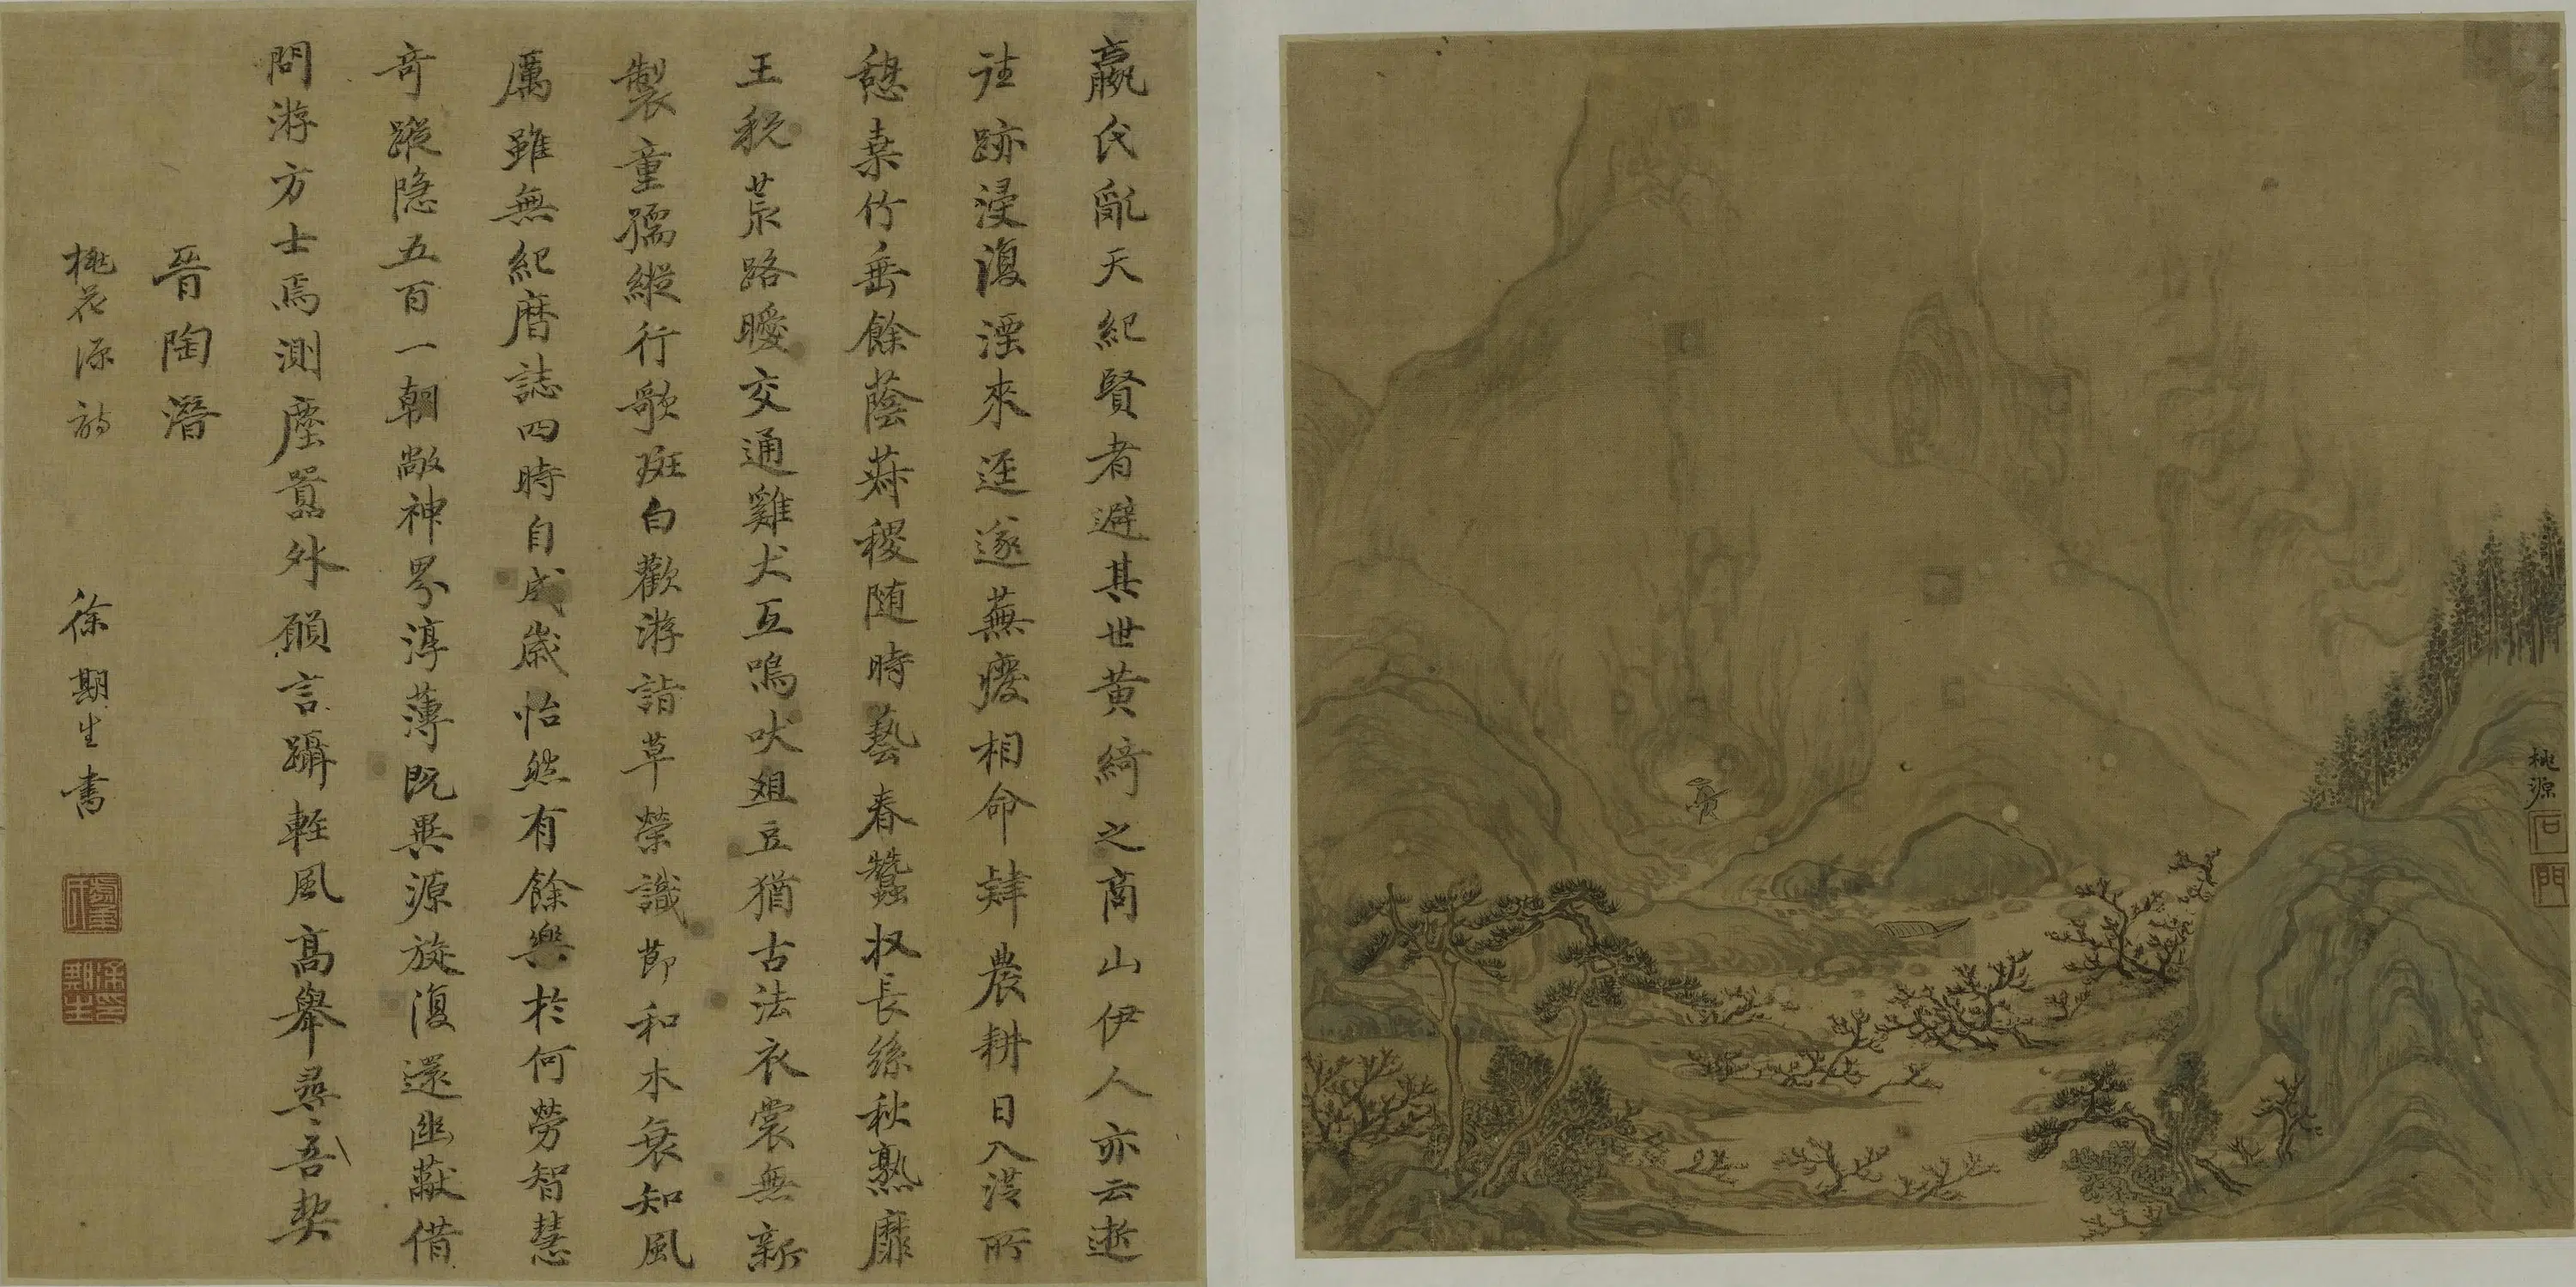 桃源
石
門
嬴氏亂天紀賢者避其世黃綺之商山伊人亦云逝
往跡浸復湮來逕遂蕪廢相命肄農耕日入從所
憩桑竹垂餘蔭菽稷随時藝春蠶收長絲秋熟靡
王稅荒路曖交通雞犬互鳴吠俎豆猶古法衣裳無新
製童孺縱行歌斑白歡游詣草榮識節和木衰知風
厲雖無紀曆誌四時自成歲怡然有餘樂於何勞智慧
奇蹤隱五百一朝敞神界淳薄既異源旋復還幽蔽借
問游方士焉測塵囂外願言躡輕風高舉尋吾契
晉陶潛
桃花源詩 徐期生書
徐印期生